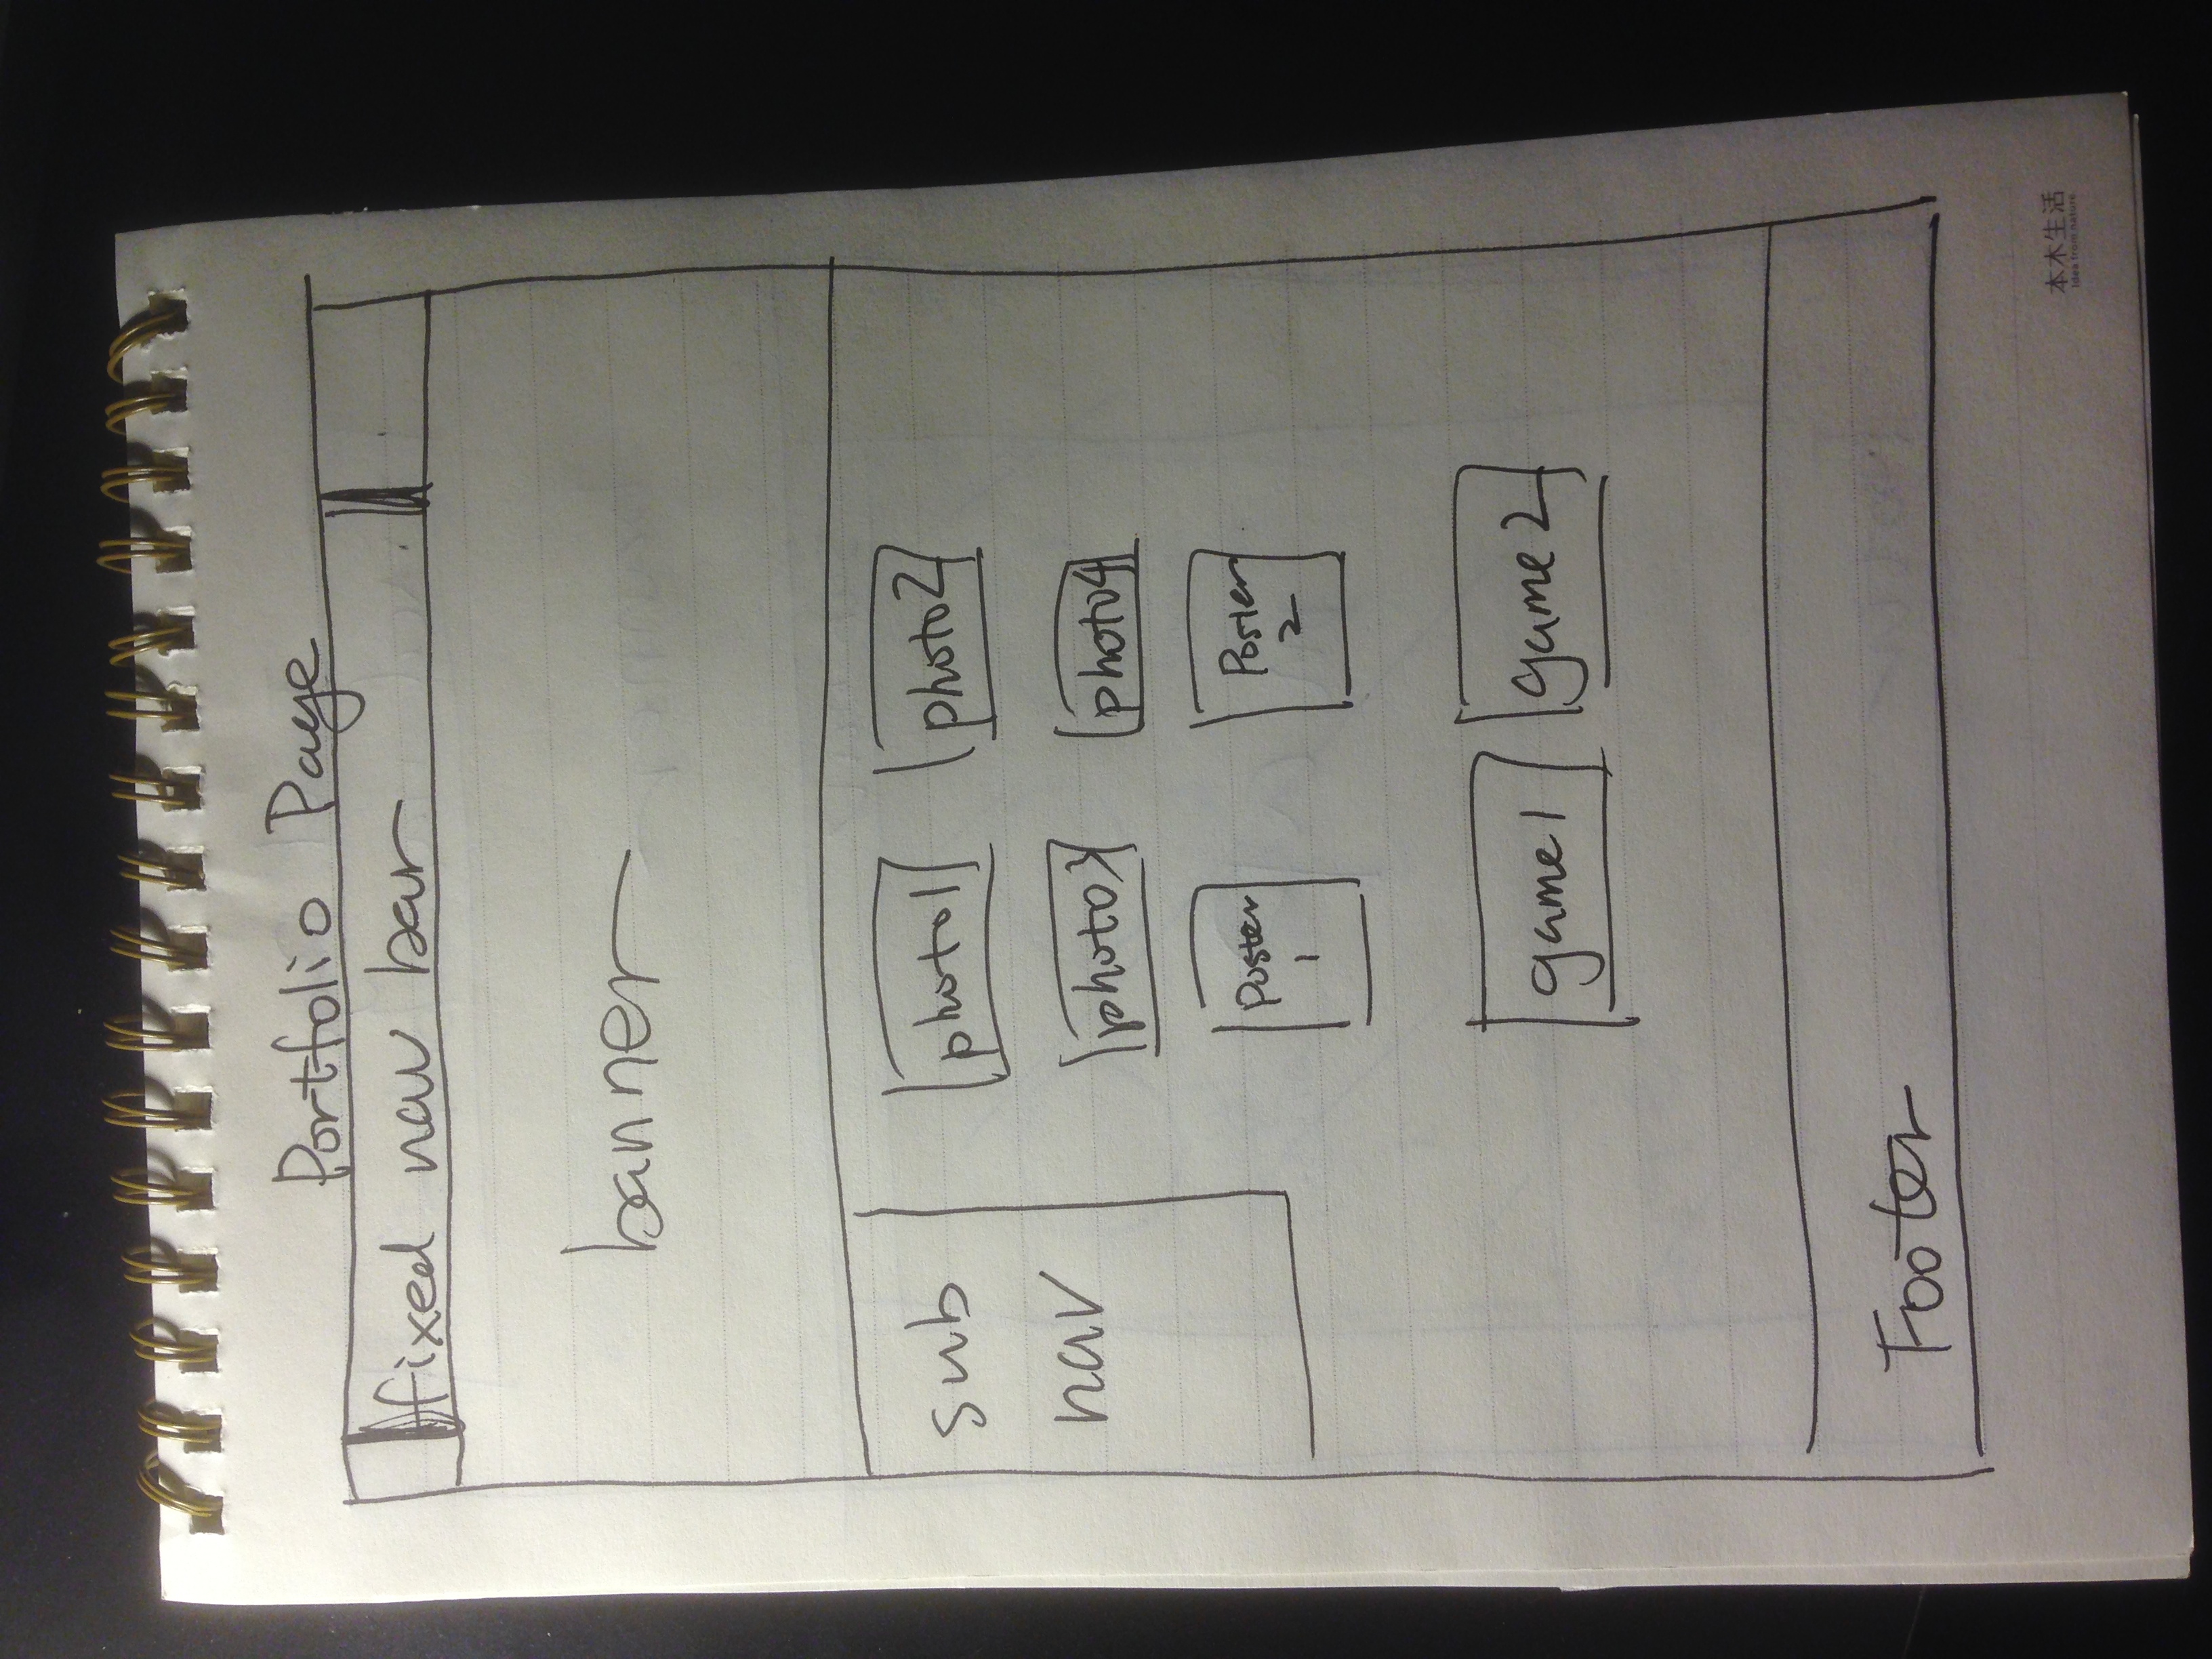 Portfolio Page
fixed nav bar
banner
sub
nav
photo1 photo2
photo3 photo4
Poster
1
Poster
2
game1 game2
Footer
本木生活
Idea from nature